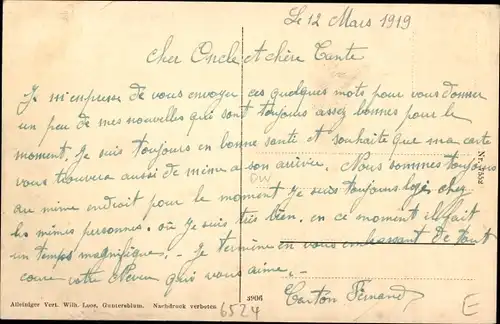 Le 12 Mars 1919
Cher Oncle et chère Tante
Je m'empresse de vous envoyer ces quelques mots pour vous donner
un peu de mes nouvelles qui sont toujours assez bonnes pour le
moment. Je suis toujours en bonne santé et souhaite que ma carte
vous trouvera aussi de même a son arrivée. Nous sommes toujours
au même endroit pour le moment je suis toujours logé chez
les mêmes personnes. où je suis très bien. en ce moment il fait
un temps magnifique. - Je termine en vous embrassant de tout
coeur votre Neveu qui vous aime. -
Carton Fernand
Nr. 7552
DW
Alleiniger Vert. Wilh. Loos, Guntersblum. Nachdruck verboten.
3906
6524
E